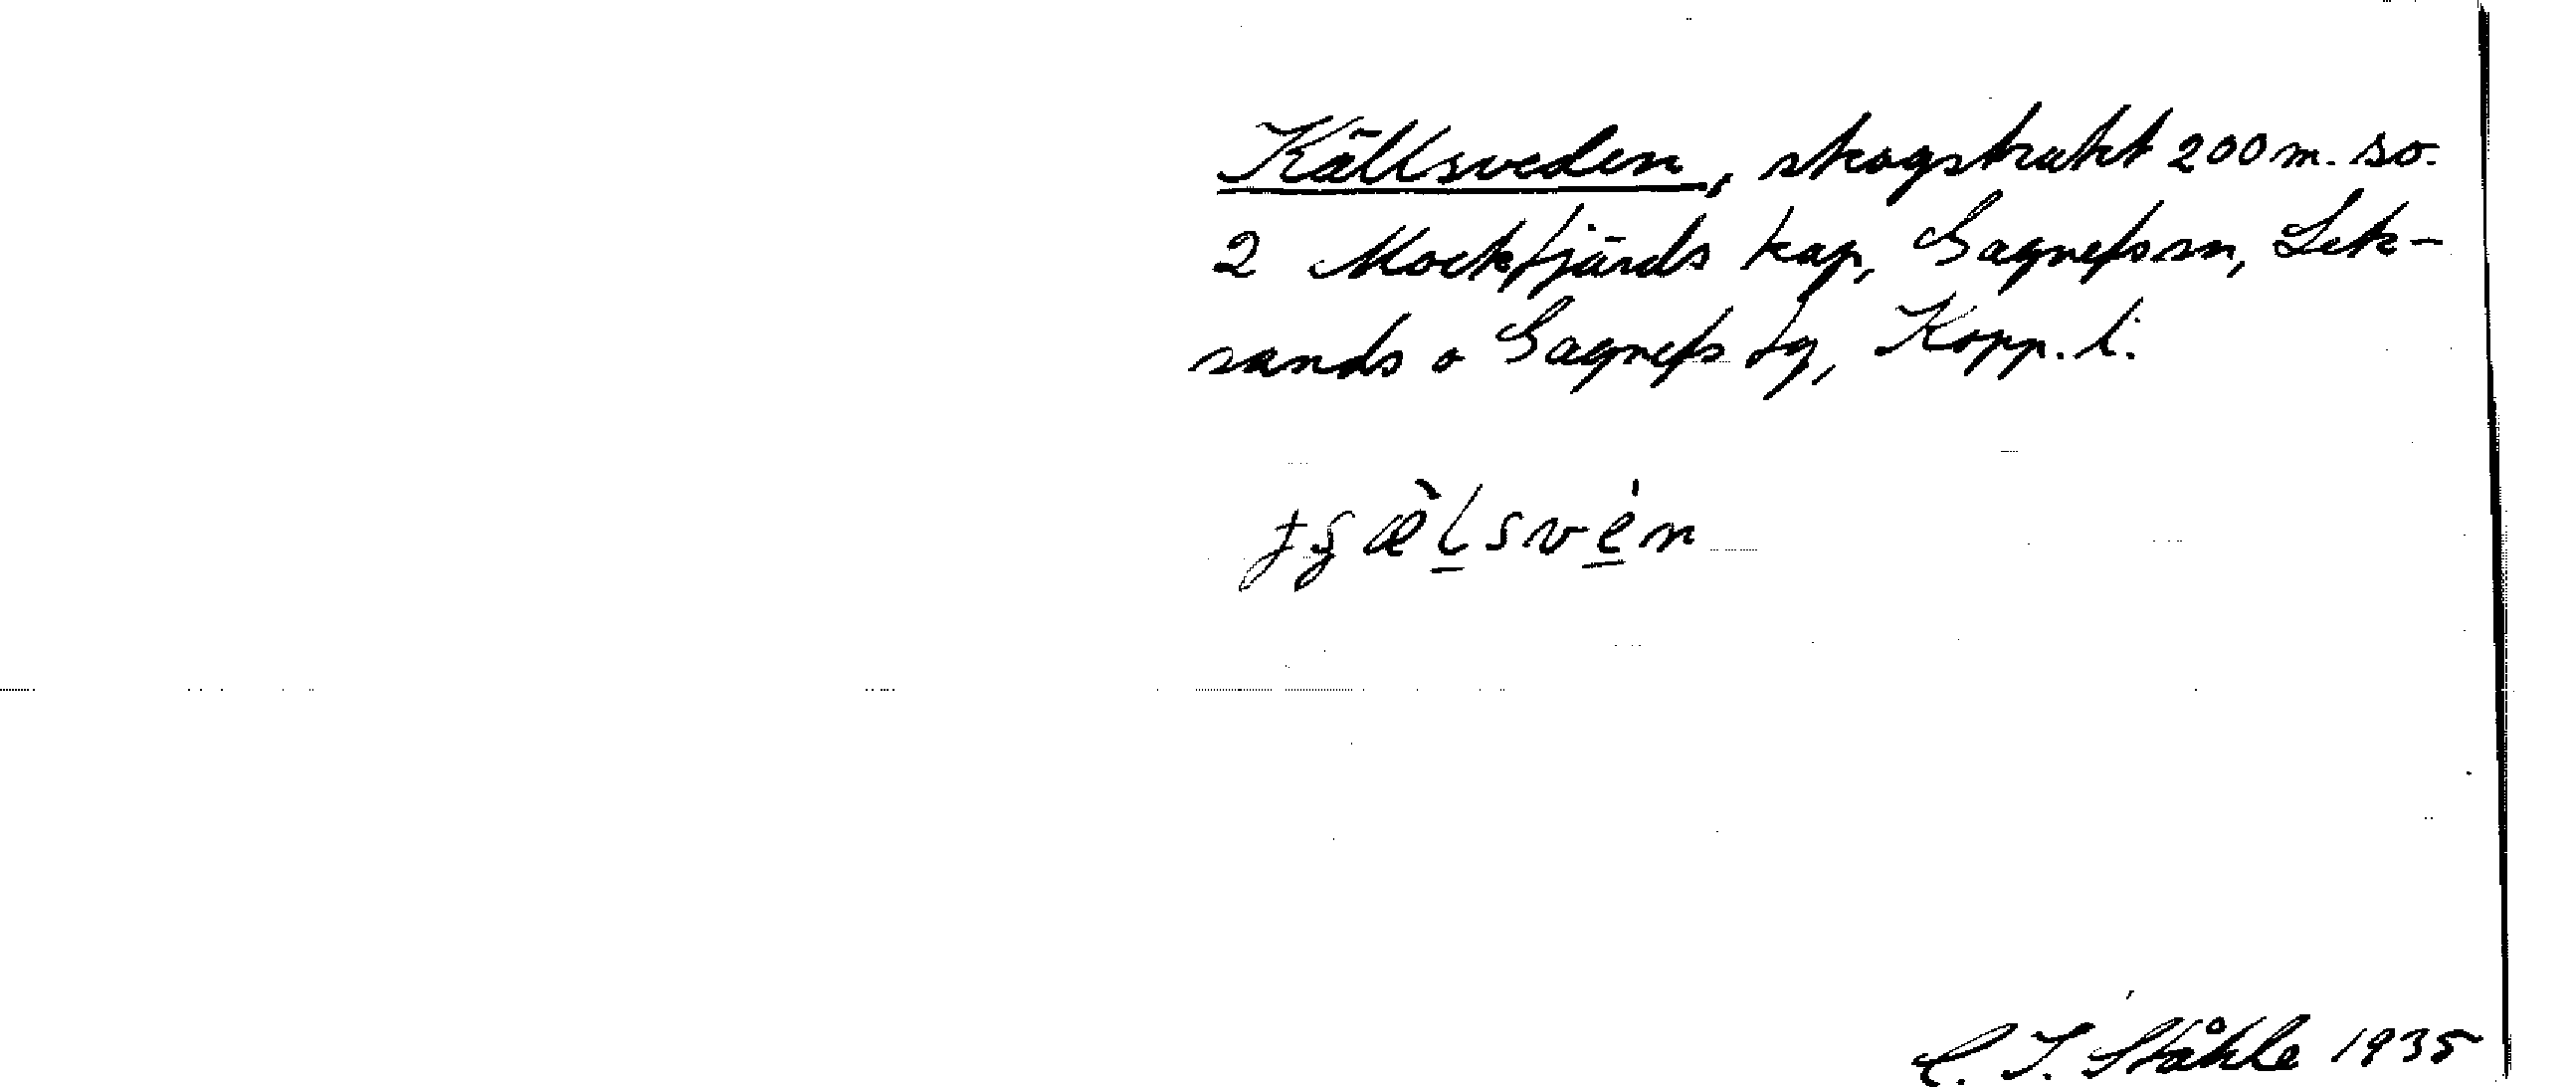 Källsveden, skogstrakt 200 m. so.
2 Mockfjärds kap, Gagnefs sn, Lek-
sands o Gagnefs tg, Kopp. l.
C. I. Ståhle 1935